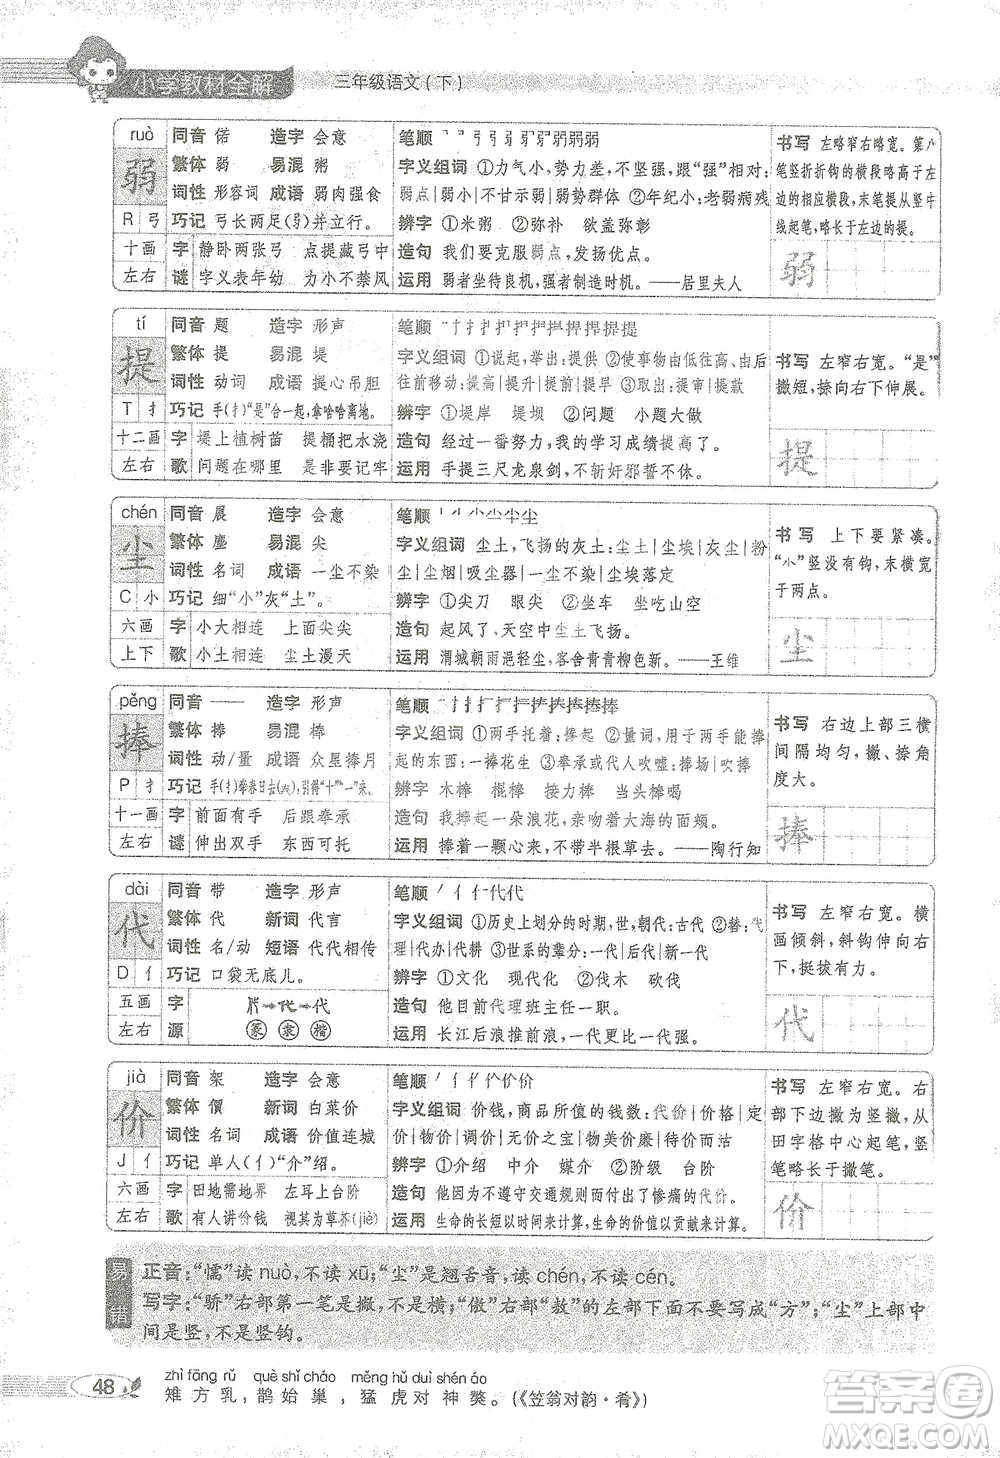 小学教材全解
三年级语文(下)
ruò 同音 偌 造字 会意
弱 繁体 弱 易混 粥
词性 形容词 成语 弱肉强食
R 弓 巧记 弓长两足(弱)并立行。
十画 字 静卧两张弓 点提藏弓中
左右 谜 字义表年幼 力小不禁风
笔顺
字义组词 ①力气小,势力差,不坚强,跟“强”相对:
弱点|弱小|不甘示弱|弱势群体 ②年纪小:老弱病残
辨字 ①米粥 ②弥补 欲盖弥彰
造句 我们要克服弱点,发扬优点。
运用 弱者坐待良机,强者制造时机。——居里夫人
书写 左略窄右略宽。第八
笔竖折折钩的横段略高于左
边的横段,末笔提从竖中
线起笔,略长于左边的提。
弱
tí 同音 题 造字 形声
提 繁体 提 易混 堤
词性 动词 成语 提心吊胆
T 扌 巧记 手(扌)“是”合一起,拿啥啥离地。
十二画 字 堤上植树苗 提桶把水浇
左右 歌 问题在哪里 是非要记牢
笔顺
字义组词 ①说起,举出:提供 ②使事物由低往高、由后
往前移动:提高|提升|提前|提早 ③取出:提审|提款
辨字 ①堤岸 堤坝 ②问题 小题大做
造句 经过一番努力,我的学习成绩提高了。
运用 手提三尺龙泉剑,不斩奸邪誓不休。
书写 左窄右宽。“是”
撇短,捺向右下伸展。
提
chén 同音 晨 造字 会意
尘 繁体 塵 易混 尖
词性 名词 成语 一尘不染
C 小 巧记 细“小”灰“土”。
六画 字 小大相连 上面尖尖
上下 歌 小土相连 尘土漫天
笔顺
字义组词 尘土,飞扬的灰土:尘土|尘埃|灰尘|粉
尘|吸尘器|一尘不染|尘埃落定
辨字 ①尖刀 眼尖 ②坐车 坐吃山空
造句 起风了,天空中尘土飞扬。
运用 渭城朝雨浥轻尘,客舍青青柳色新。——王维
书写 上下要紧凑。
“小”竖没有钩,末横宽
于两点。
尘
pěng 同音 —— 造字 形声
捧 繁体 捧 易混 棒
词性 动/量 成语 众星捧月
P 扌 巧记 手(扌)奉春日去(夫),引得“十”“一”来。
十一画 字 前面有手 后跟奉承
左右 谜 伸出双手 东西可托
笔顺
字义组词 ①两手托着:捧起 ②量词,用于两手能捧
起的东西:一捧花生 ③奉承或代人吹嘘:捧场|吹捧
辨字 木棒 棍棒 接力棒 当头棒喝
造句 我捧起一朵浪花,亲吻着大海的面颊。
运用 捧着一颗心来,不带半根草去。——陶行知
书写 右边上部三横
间隔均匀,撇、捺角
度大。
捧
dài 同音 带 造字 形声
代 繁体 代 新词 代言
词性 名/动 短语 代代相传
D 亻 巧记 口袋无底儿。
五画 字
左右 源 篆 隶 楷
笔顺
字义组词 ①历史上划分的时期,世,朝代:古代 ②替:代
理|代办|代耕 ③世系的辈分:一代|后代|下一代
辨字 ①文化 现代化 ②伐木 砍伐
造句 他目前代理班主任一职。
运用 长江后浪推前浪,一代更比一代强。
书写 左窄右宽。横
画倾斜,斜钩伸向右
下,挺拔有力。
代
jià 同音 架 造字 会意
价 繁体 價 新词 白菜价
词性 名词 成语 价值连城
J 亻 巧记 单人(亻)“介”绍。
六画 字 田地需地界 左耳上台阶
左右 歌 有人讲价钱 视其为草芥(jiè)
笔顺
字义组词 价钱,商品所值的钱数:代价|价格|定
价|物价|调价|无价之宝|物美价廉|待价而沽
辨字 ①介绍 中介 媒介 ②阶级 台阶
造句 他因为不遵守交通规则而付出了惨痛的代价。
运用 生命的长短以时间来计算,生命的价值以贡献来计算。
书写 左窄右宽。右
部下边撇为竖撇,从
田字格中心起笔,竖
笔略长于撇笔。
价
易错
正音:“懦”读nuò,不读xū;“尘”是翘舌音,读chén,不读cén。
写字:“骄”右部第一笔是撇,不是横;“傲”右部“敖”的左部下面不要写成“方”;“尘”上部中
间是竖,不是竖钩。
48
zhì fāng rǔ què shǐ cháo měng hǔ duì shén áo
雉方乳,鹊始巢,猛虎对神獒。(《笠翁对韵·肴》)
答案圈
MXQE.COM